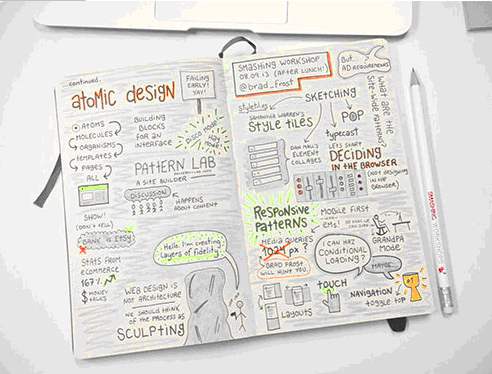 continued.
atomic design
FAILING
EARLY!
YAY!
ATOMS
MOLECULES
ORGANISMS
TEMPLATES
PAGES
ALL
BUILDING
BLOCKS
FOR AN
INTERFACE
DISCO MODE
PATTERN LAB
A SITE BUILDER
DISCUSSION
HAPPENS
ABOUT CONTENT
SHOW!
(DON'T TELL)
BANK is ETSY
STATS FROM
ECOMMERCE
$ MONEY
TALKS
Hello. I'm creating
Layers of fidelity
WEB DESIGN IS
NOT ARCHITECTURE
WE SHOULD THINK
OF THE PROCESS AS
SCULPTING
SMASHING WORKSHOP
08.09.13 (AFTER LUNCH!)
@brad_frost
BUT..
AD REQUIREMENTS
WHAT ARE THE
SITE-WIDE PATTERNS?
SKETCHING
styletiles
SAMANTHA WARREN'S
STYLE TILES
POP
typecast
DAN MALL'S
ELEMENT
COLLAGES
LET'S START
DECIDING
IN THE BROWSER
(NOT DESIGNING
IN THE
BROWSER)
RESPONSIVE
PATTERNS
MOBILE FIRST
EMS!
GRANDPA
MODE
MEDIA QUERIES
1024 px ?
BRAD FROST
WILL HUNT YOU.
I CAN HAZ
CONDITIONAL
LOADING?
MAYBE..
TOUCH
LAYOUTS
NAVIGATION
toggle top